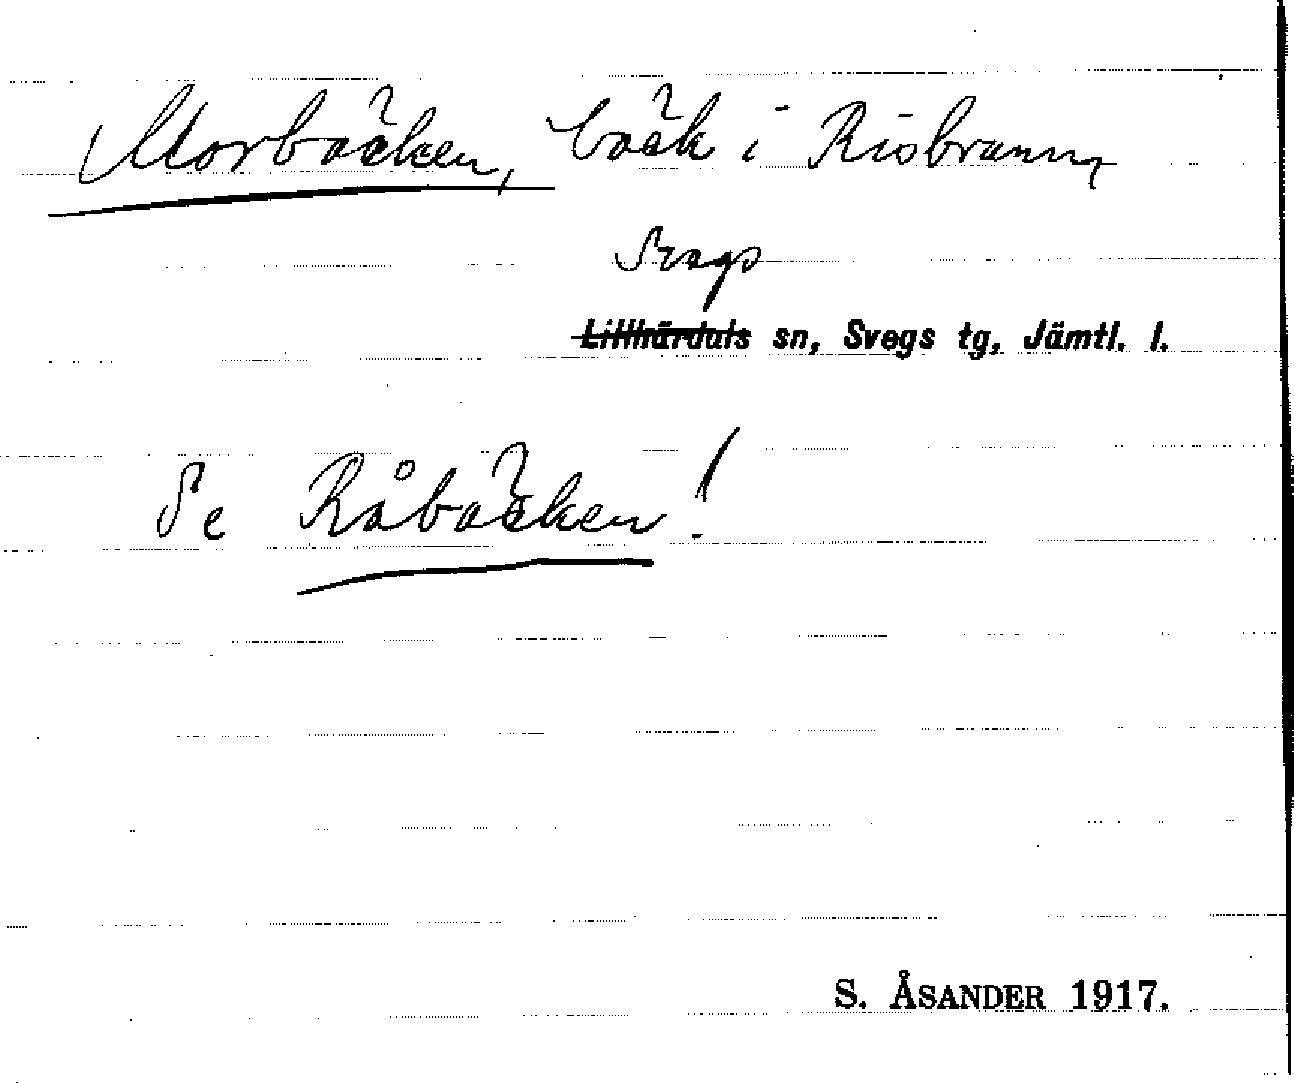 Morbäcken, bäck i Risbrunn,
Svegs
Lillhärdals sn, Svegs tg, Jämtl. l.
Se Råbäcken!
S. ÅSANDER 1917.